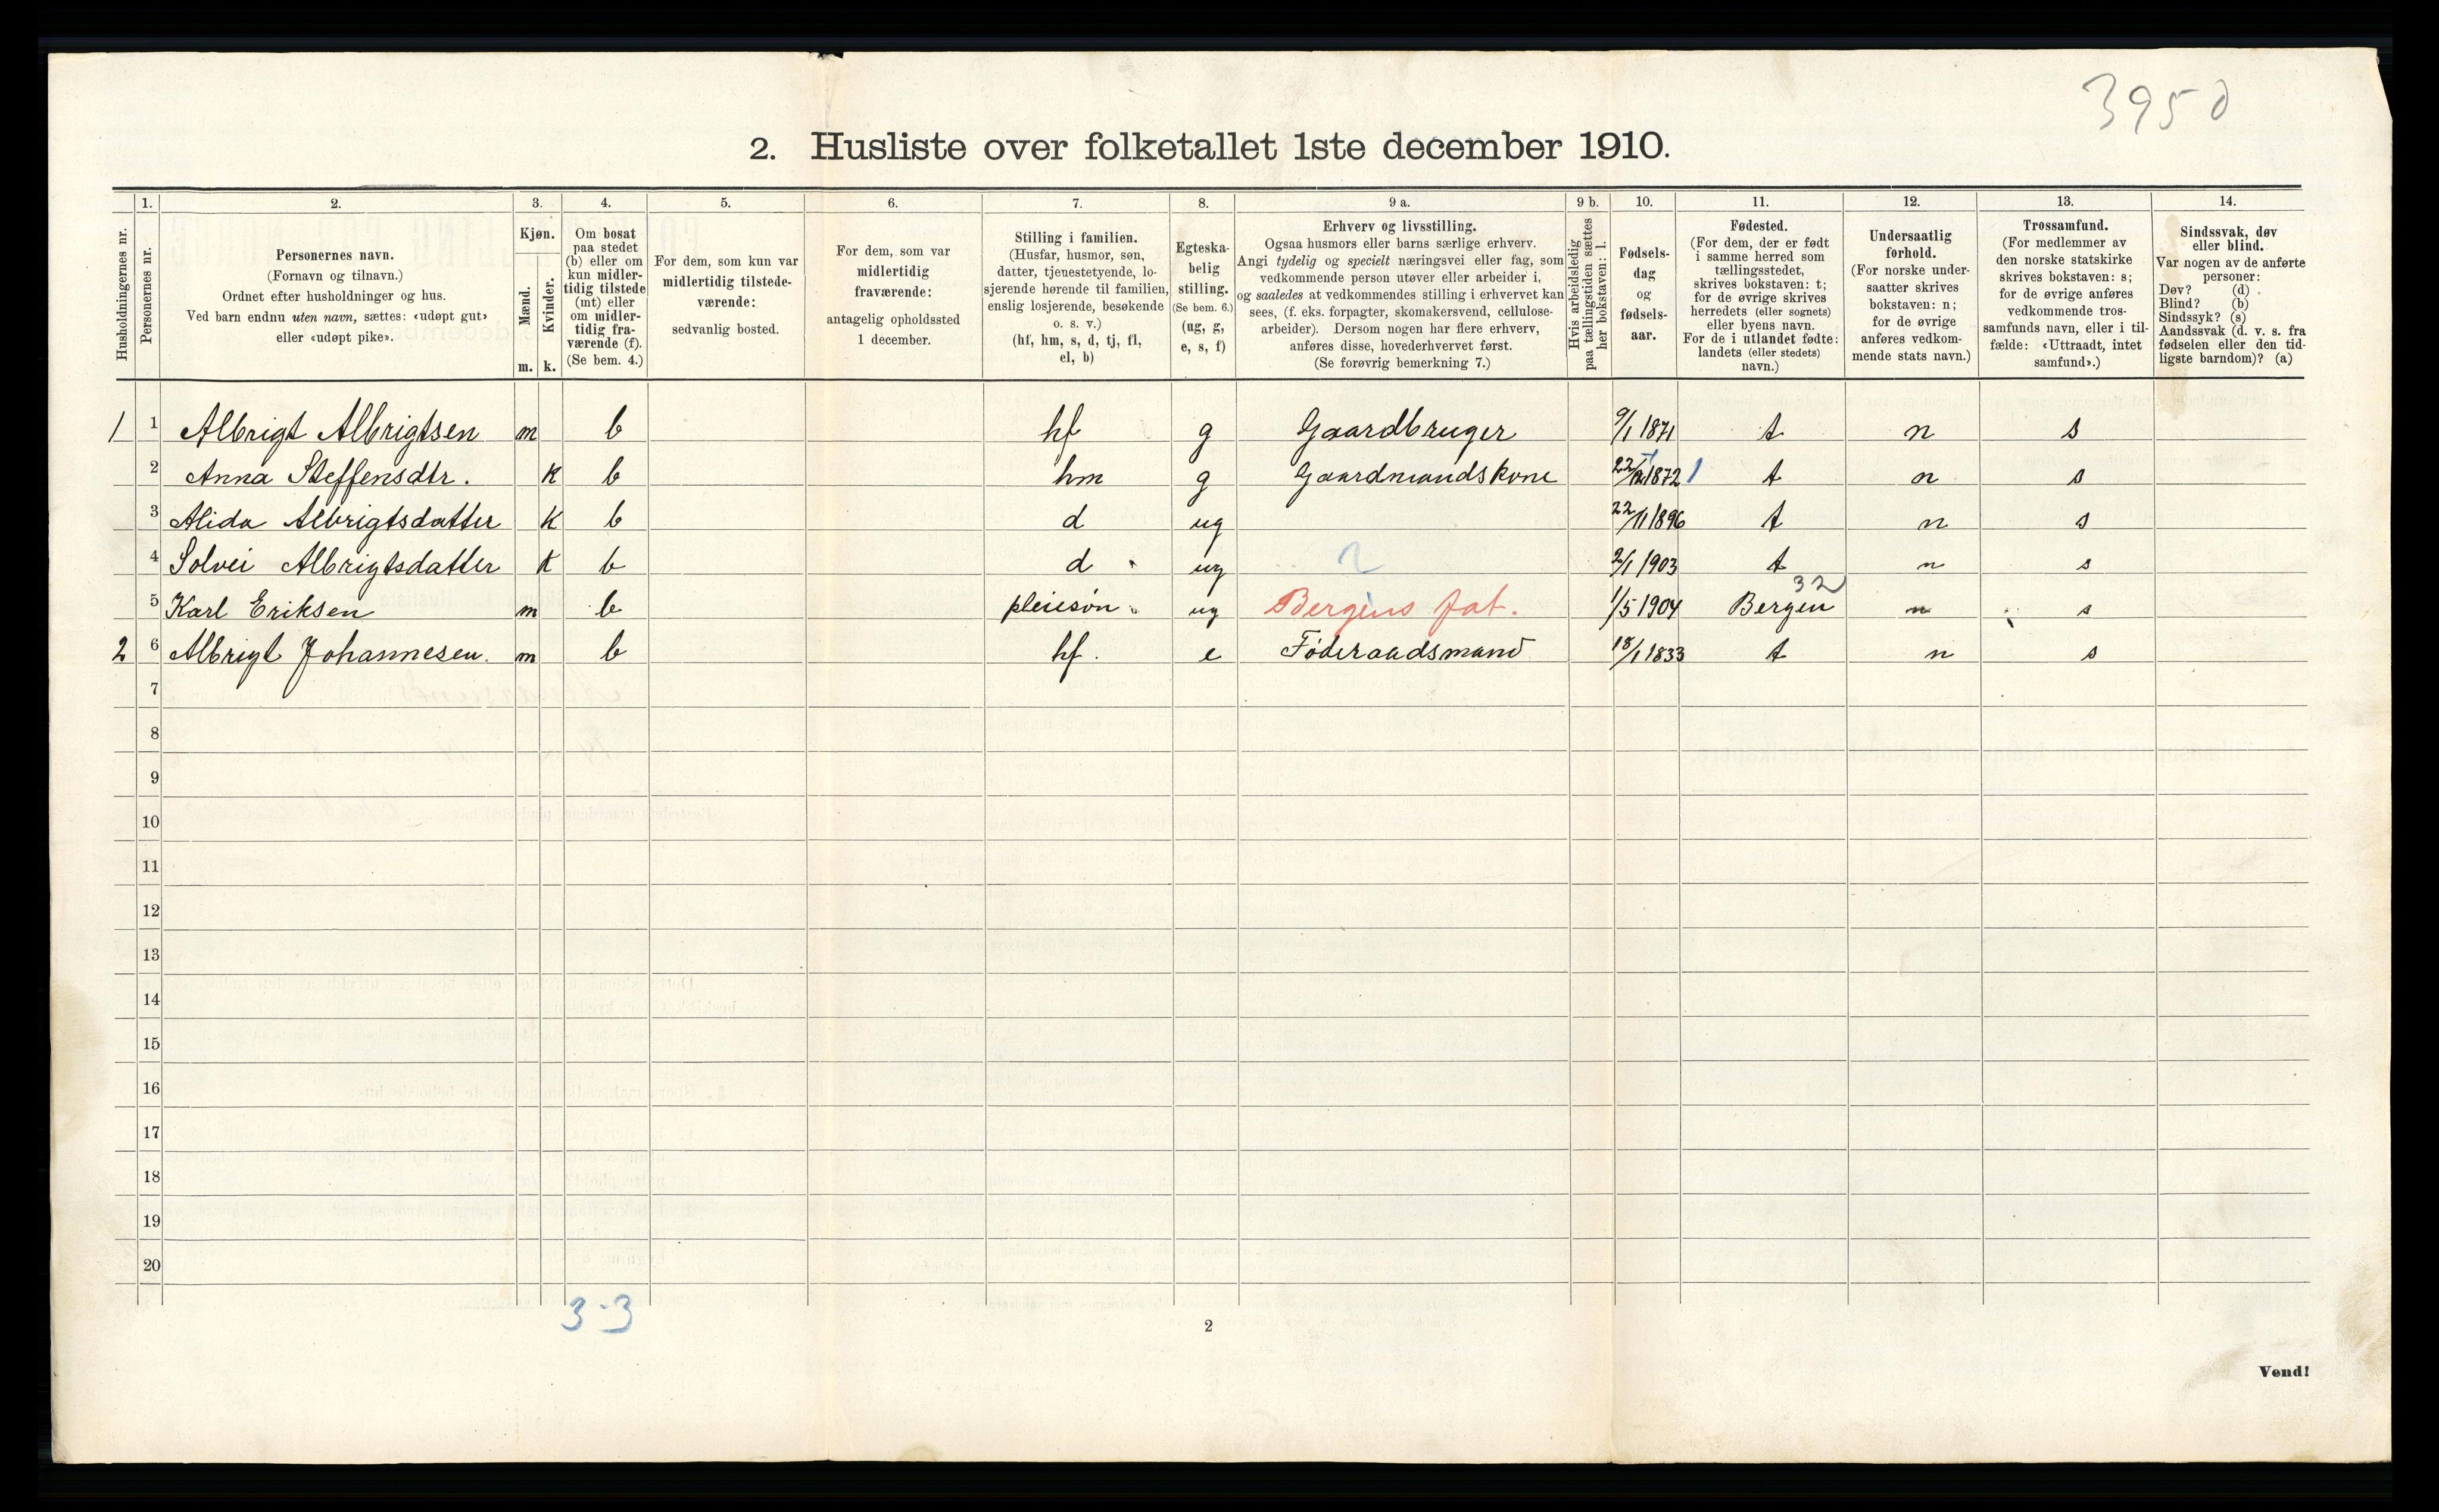 3950
2. Husliste over folketallet 1ste december 1910.
Husholdningernes nr.
1.
Personernes nr.
2.
Personernes navn.
(Fornavn og tilnavn.)
Ordnet efter husholdninger og hus.
Ved barn endnu uten navn, sættes: «udøpt gut»
eller «udøpt pike».
3.
Kjøn.
Mænd.
Kvinder.
m. k.
4.
Om bosat
paa stedet
(b) eller om
kun midler-
tidig tilstede
(mt) eller
om midler-
tidig fra-
værende (f).
(Se bem. 4.)
5.
For dem, som kun var
midlertidig tilstede-
værende:
sedvanlig bosted.
6.
For dem, som var
midlertidig
fraværende:
antagelig opholdssted
1 december.
7.
Stilling i familien.
(Husfar, husmor, søn,
datter, tjenestetyende, lo-
sjerende hørende til familien,
enslig losjerende, besøkende
o. s. v.)
(hf, hm, s, d, tj, fl,
el, b)
8.
Egteska-
belig
stilling.
(Se bem. 6.)
(ug, g,
e, s, f)
9 a.
Erhverv og livsstilling.
Ogsaa husmors eller barns særlige erhverv.
Angi tydelig og specielt næringsvei eller fag, som
vedkommende person utøver eller arbeider i,
og saaledes at vedkommendes stilling i erhvervet kan
sees, (f. eks. forpagter, skomakersvend, cellulose-
arbeider). Dersom nogen har flere erhverv,
anføres disse, hovederhvervet først.
(Se forøvrig bemerkning 7.)
9 b.
Hvis arbeidsledig
paa tællingstiden sættes
her bokstaven: l.
10.
Fødsels-
dag
og
fødsels-
aar.
11.
Fødested.
(For dem, der er født
i samme herred som
tællingsstedet,
skrives bokstaven: t;
for de øvrige skrives
herredets (eller sognets)
eller byens navn.
For de i utlandet fødte:
landets (eller stedets)
navn.)
12.
Undersaatlig
forhold.
(For norske under-
saatter skrives
bokstaven: n;
for de øvrige
anføres vedkom-
mende stats navn.)
13.
Trossamfund.
(For medlemmer av
den norske statskirke
skrives bokstaven: s;
for de øvrige anføres
vedkommende tros-
samfunds navn, eller i til-
fælde: «Uttraadt, intet
samfund».)
14.
Sindssvak, døv
eller blind.
Var nogen av de anførte
personer:
Døv? (d)
Blind? (b)
Sindssyk? (s)
Aandssvak (d. v. s. fra
fødselen eller den tid-
ligste barndom)? (a)
1 1 Albrigt Albrigtsen m b hf g Gaardbruger 9/1 1871 t n s
2 Anna Steffensdtr. K b hm g Gaardmandskone 1872 1 t n s
3 Alida Albrigtsdatter K b d ug 22/11 1896 t n s
4 Solvei Albrigtsdatter K b d ug 2 2/1 1903 t n s
5 Karl Eriksen m b pleiesøn ug Bergens fat. 1/5 1904 Bergen 32 n s
2 6 Albrigt Johannesen. m b hf. e Føderaadsmand 18/1 1833 t n s
7
8
9
10
11
12
13
14
15
16
17
18
19
20
3-3
2
Vend!